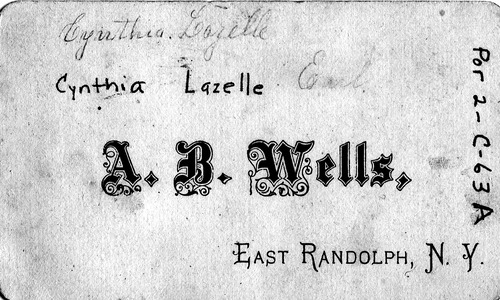 Cynthia. Lazelle
Cynthia Lazelle
A. B. Wells,
EAST RANDOLPH, N. Y.
Por 2-C-63A